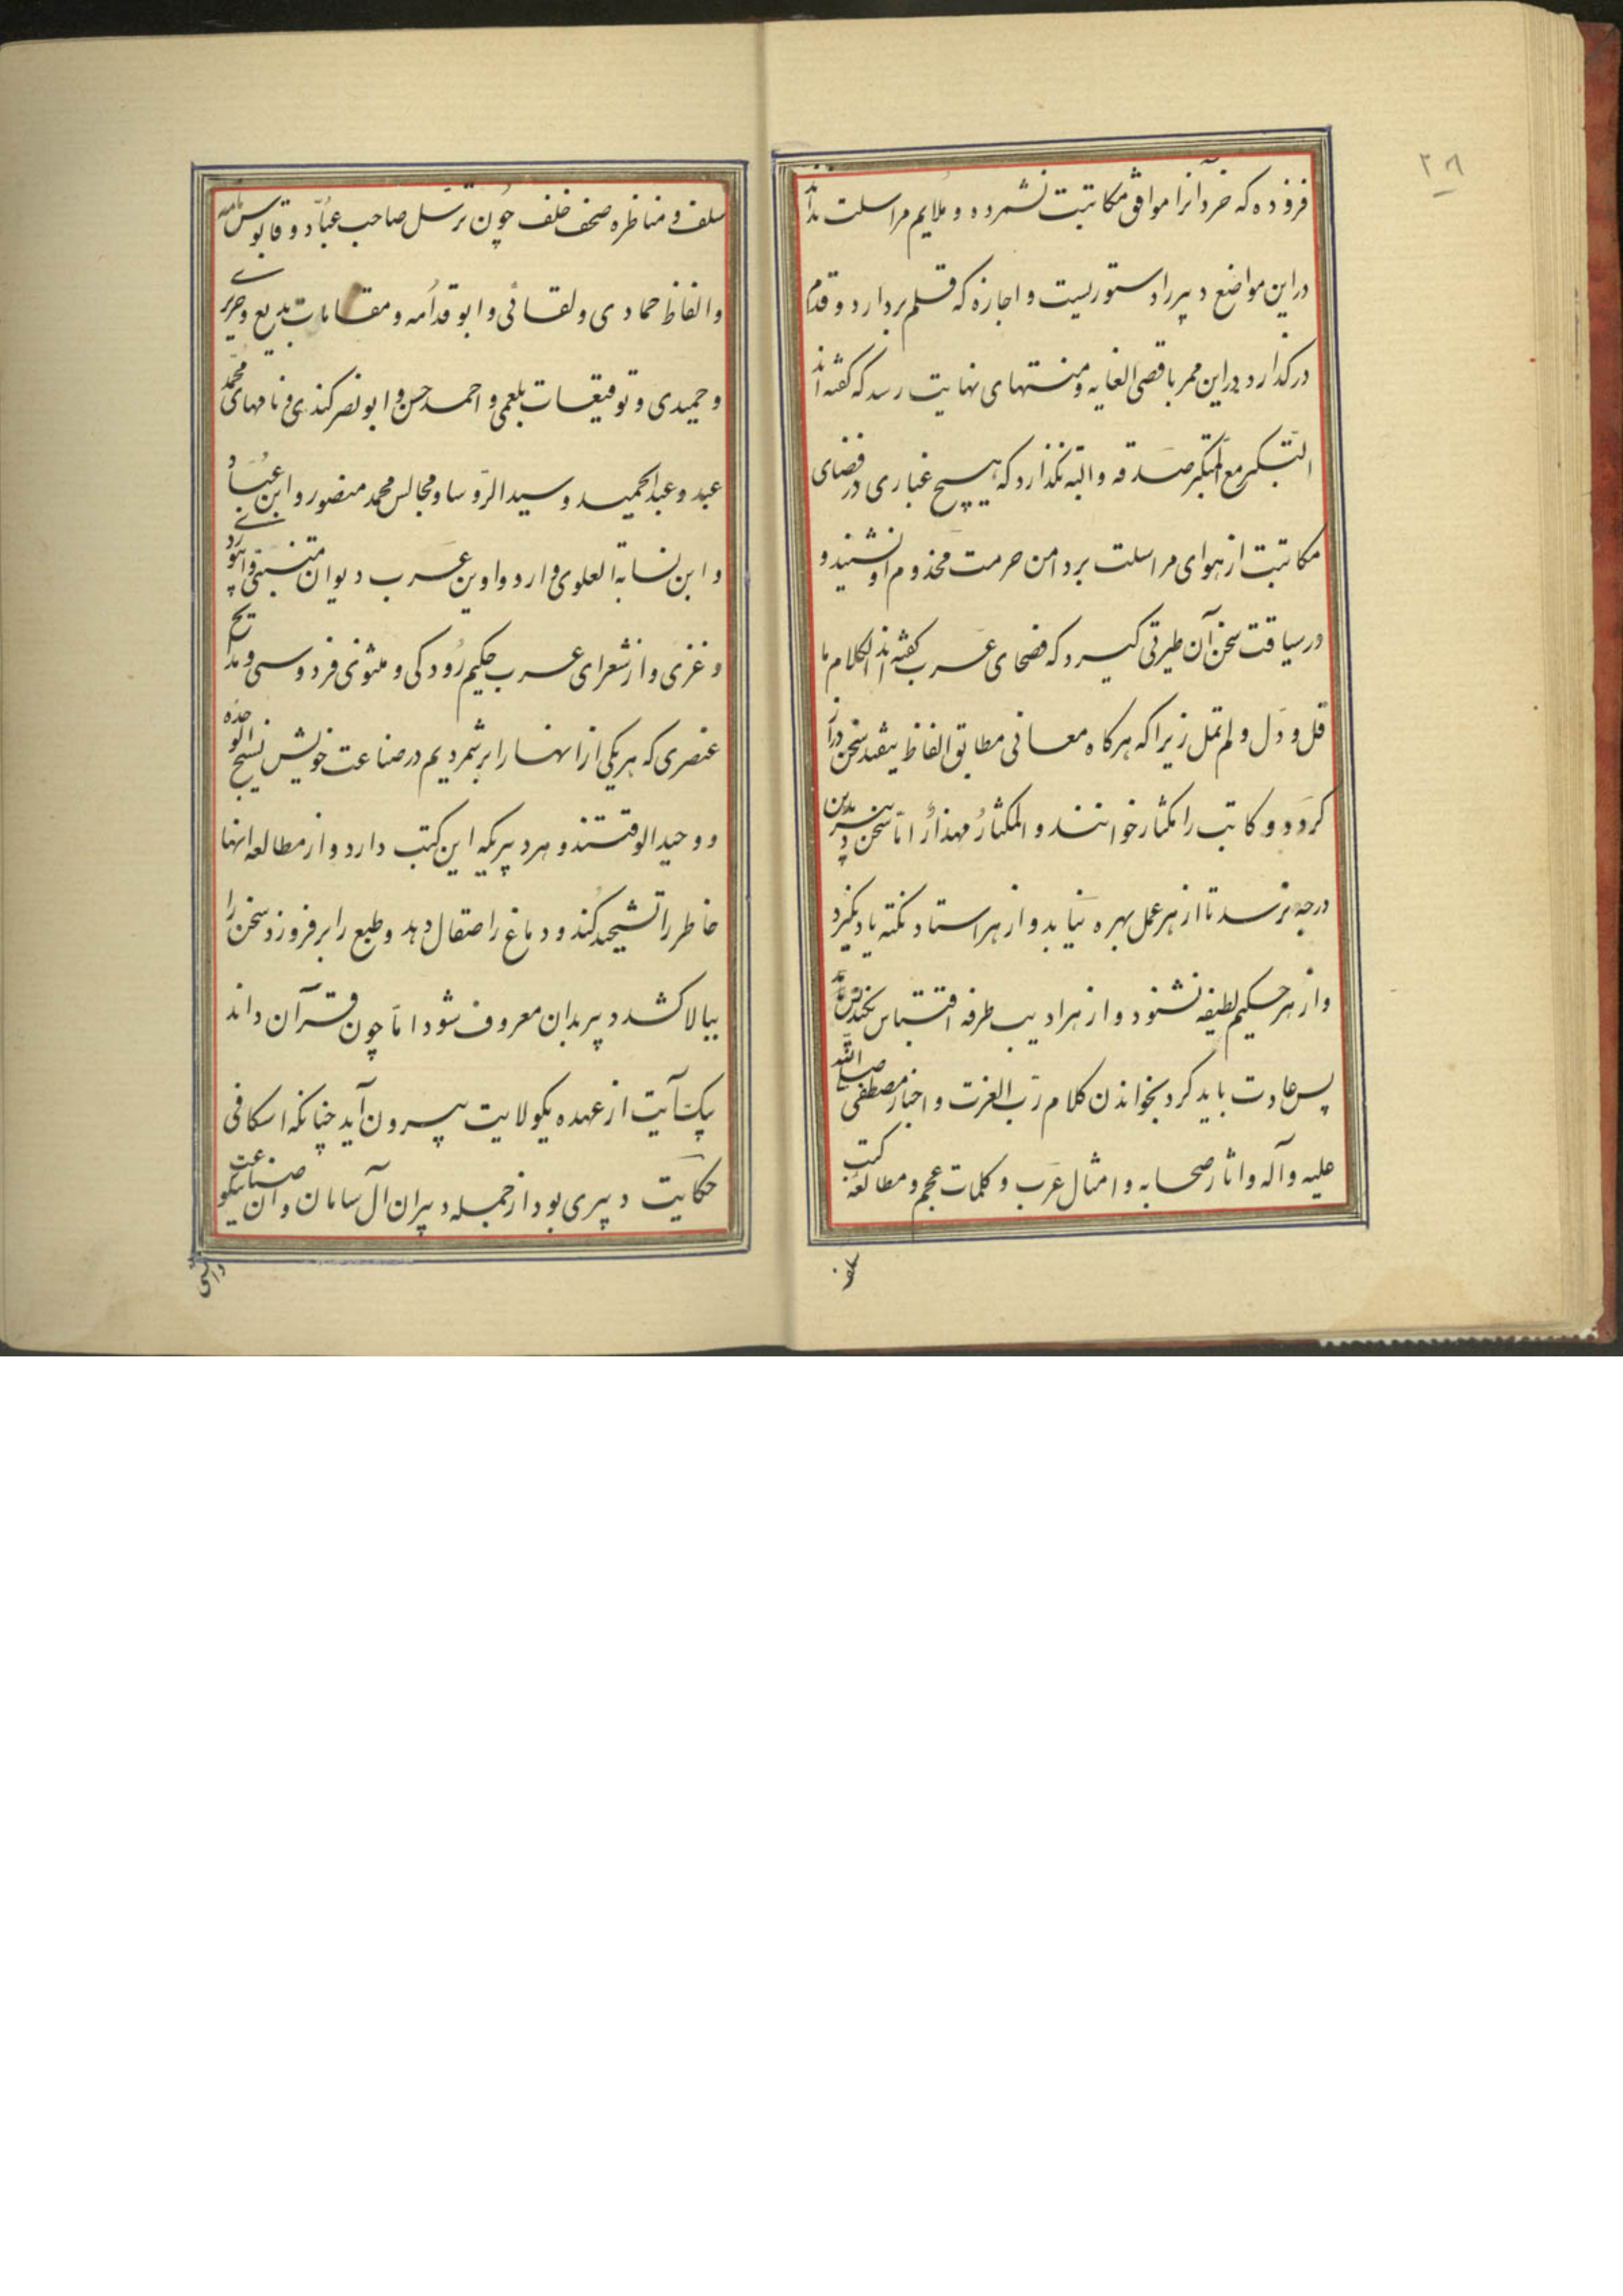 ۲۸
فزوده که خرد آنرا موافق مکاتبت نشمرده و ملایم مراسلت نداند
در این مواضع دبیر را دستوریست و اجازه که قلم بردارد و قدم
درگذارد و در این ممر باقصی الغایه و منتهای نهایت رسد که گفته‌اند
التکبر مع المتکبر صدقه و البته نگذارد که هیچ غباری در فضای
مکاتبت از هوای مراسلت بر دامن حرمت مخدوم او نشیند و
در سیاقت سخن آن طریق گیرد که فصحای عرب گفته‌اند الکلام ما
قل و دل و لم تمل زیرا که هرگاه معانی مطابق الفاظ بیفتد سخن دراز
گردد و کاتب را مکثار خوانند و المکثار مهذار اما سخن دبیر بدین
درجه نرسد تا از هر عمل بهره نیابد و از هر استاد نکته یاد نگیرد
و از هر حکیم لطیفه نشنود و از هر ادیب طرفه اقتباس نکند
پس عادت باید کرد بخواندن کلام رب العزت و اخبار مصطفی صلی الله
علیه و آله و اثار صحابه و امثال عرب و کلمات عجم و مطالعه کتب
سلف
سلف و مناظره صحف خلف چون ترسل صاحب عباد و قابوس نامه
و الفاظ حمادی و لقانی و ابو قدامه و مقامات بدیع و حریری
و حمیدی و توقیعات بلعمی و احمد حسن و ابو نصر کندی و نامهای محمد
عبد و عبد الحمید و سید الروسا و مجالس محمد منصور و ابن عباد
و ابن نسابة العلوی و از دواوین عرب دیوان متنبی و ابیوردی
و غزی و از شعرای عرب حکیم رودکی و مثنوی فردوسی و مدایح
عنصری که هر یکی از اینها را برشمردیم در صناعت خویش نسیج الوحده
و وحید الوقتند و هر دبیر که این کتب دارد و از مطالعه انها
خاطر را تشحیذ کند و دماغ را صقال دهد و طبع را برفروزد سخن را
ببالا کشد دبیر بدان معروف شود اما چون قرآن داند
بیک آیت از عهده یکولایت بیرون آید چنانکه اسکافی
حکایت دبیری بود از جمله دبیران آل سامان و آن صناعت نیکو
دانستی